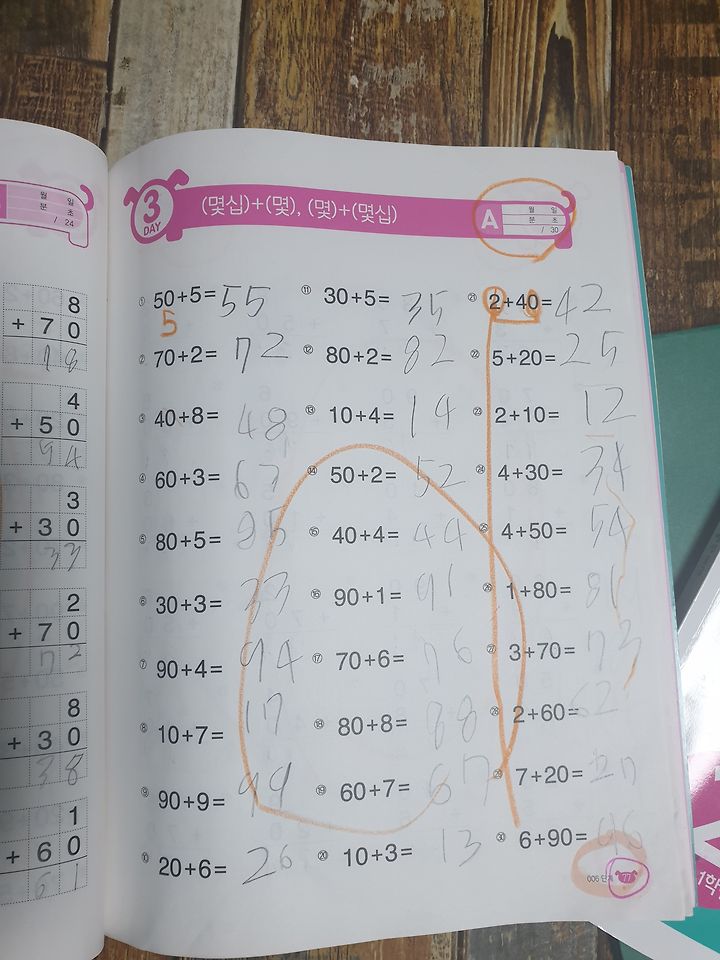 월 일
분 초
/ 24
8
+ 7 0
7 8
4
+ 5 0
5 4
3
+ 3 0
3 3
2
+ 7 0
7 2
8
+ 3 0
3 8
1
+ 6 0
6 1
3
DAY
(몇십)+(몇), (몇)+(몇십)
A
월 일
분 초
/ 30
① 50+5= 55
5
② 70+2= 72
③ 40+8= 48
④ 60+3= 63
⑤ 80+5= 85
⑥ 30+3= 33
⑦ 90+4= 94
⑧ 10+7= 17
⑨ 90+9= 99
⑩ 20+6= 26
⑪ 30+5= 35
⑫ 80+2= 82
⑬ 10+4= 14
⑭ 50+2= 52
⑮ 40+4= 44
⑯ 90+1= 91
⑰ 70+6= 76
⑱ 80+8= 88
⑲ 60+7= 67
⑳ 10+3= 13
㉑ 2+40= 42
㉒ 5+20= 25
㉓ 2+10= 12
㉔ 4+30= 34
㉕ 4+50= 54
㉖ 1+80= 81
㉗ 3+70= 73
㉘ 2+60= 62
㉙ 7+20= 27
㉚ 6+90= 96
006 단계 77